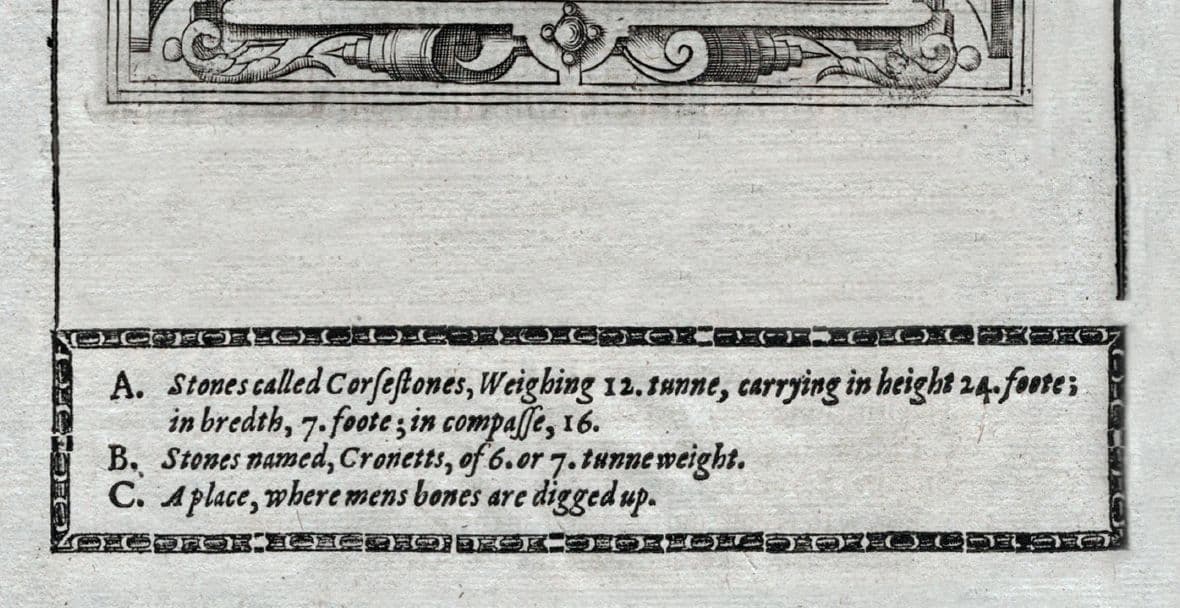 A. Stones called Corſeſtones, Weighing 12. tunne, carrying in height 24. foote;
in bredth, 7. foote; in compaſſe, 16.
B. Stones named, Cronetts, of 6. or 7. tunne weight.
C. A place, where mens bones are digged up.